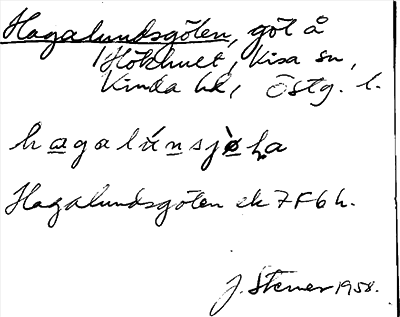 Hagalundsgölen, göl å
Hökhult, Kisa sn,
Kinda hd, Östg. l.
Hagalundsgölen ek 7F6h.
J. Stener 1958.